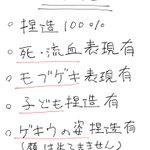 ○ 捏造100%
○ 死・流血表現有
○ モブゲキ表現有
○ 子ども捏造有
○ ゲキウの姿捏造有
(顔は出てきません)